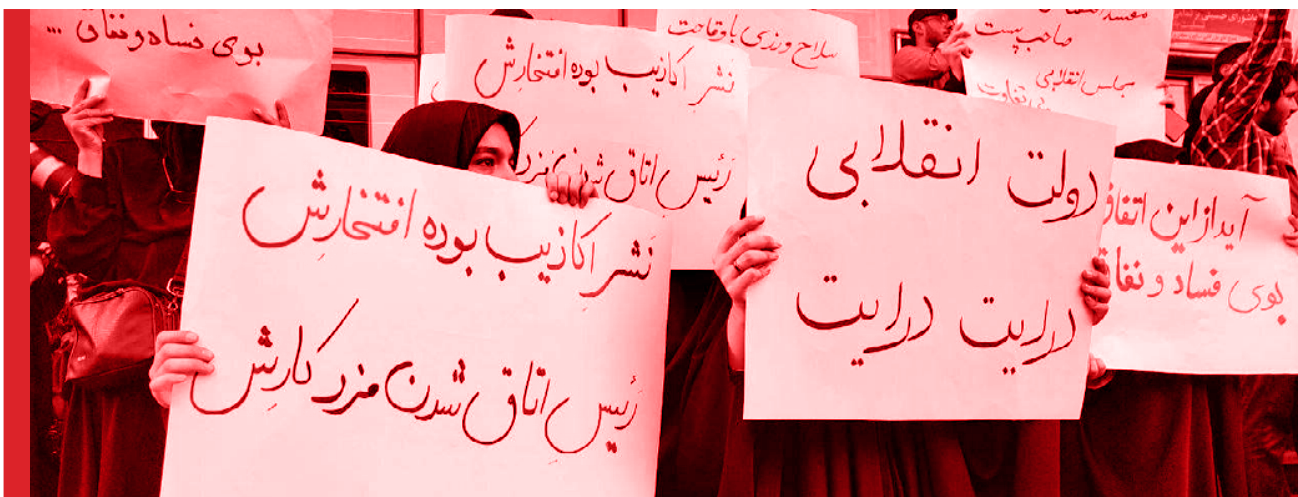 بوی فساد و نفاق ...
نشر اکاذیب بوده افتخارش
رئیس اتاق شدن مزد
سلاح ورزی با وقاحت
صاحب پست
مجلس انقلابی
بی تفاوت
نشر اکاذیب بوده افتخارش
رئیس اتاق شدن مزد کارش
دولت انقلابی
درایت درایت
آید از این اتفاق
بوی فساد و نفاق